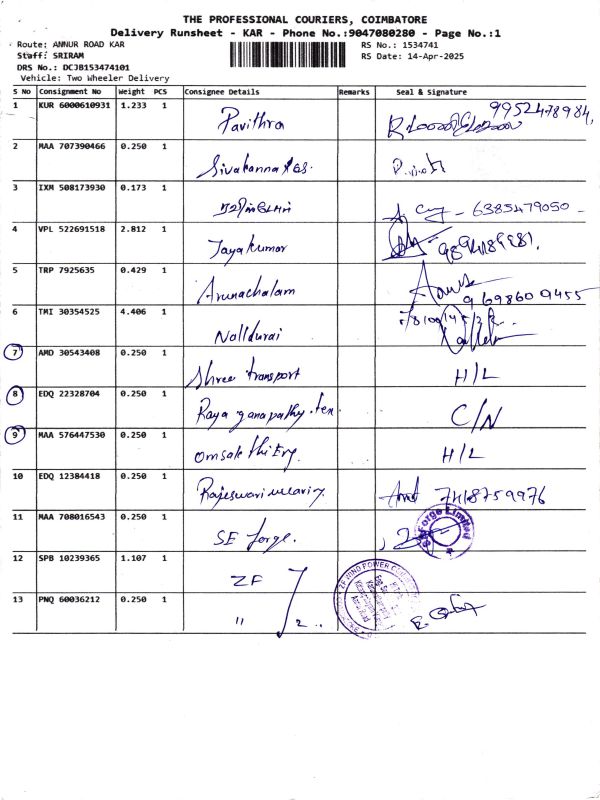 THE PROFESSIONAL COURIERS, COIMBATORE
Delivery Runsheet - KAR - Phone No.:9047080280 - Page No.:1
Route: ANNUR ROAD KAR
RS No.: 1534741
Staff: SRIRAM
RS Date: 14-Apr-2025
DRS No.: DCJB153474101
Vehicle: Two Wheeler Delivery
S No Consignment No Weight PCS Consignee Details Remarks Seal & Signature
1 KUR 6000610931 1.233 1 Pavithra 9952478984,
2 MAA 707390466 0.250 1
3 IXM 508173930 0.173 1 - 6385479050 -
4 VPL 522691518 2.812 1 Jayakumar
5 TRP 7925635 0.429 1 Arunachalam 9698609455
6 TMI 30354525 4.406 1 Nalldurai
7 AMD 30543408 0.250 1 Shree transport H/L
8 EDQ 22328704 0.250 1 Raya ganapathy.tex C/N
9 MAA 576447530 0.250 1 Omsakthi Eng. H/L
10 EDQ 12384418 0.250 1 Rajeswari weaving 7418759976
11 MAA 708016543 0.250 1 SE forge. SE Forge Limited
12 SPB 10239365 1.107 1 ZF
13 PNQ 60036212 0.250 1 " 2..